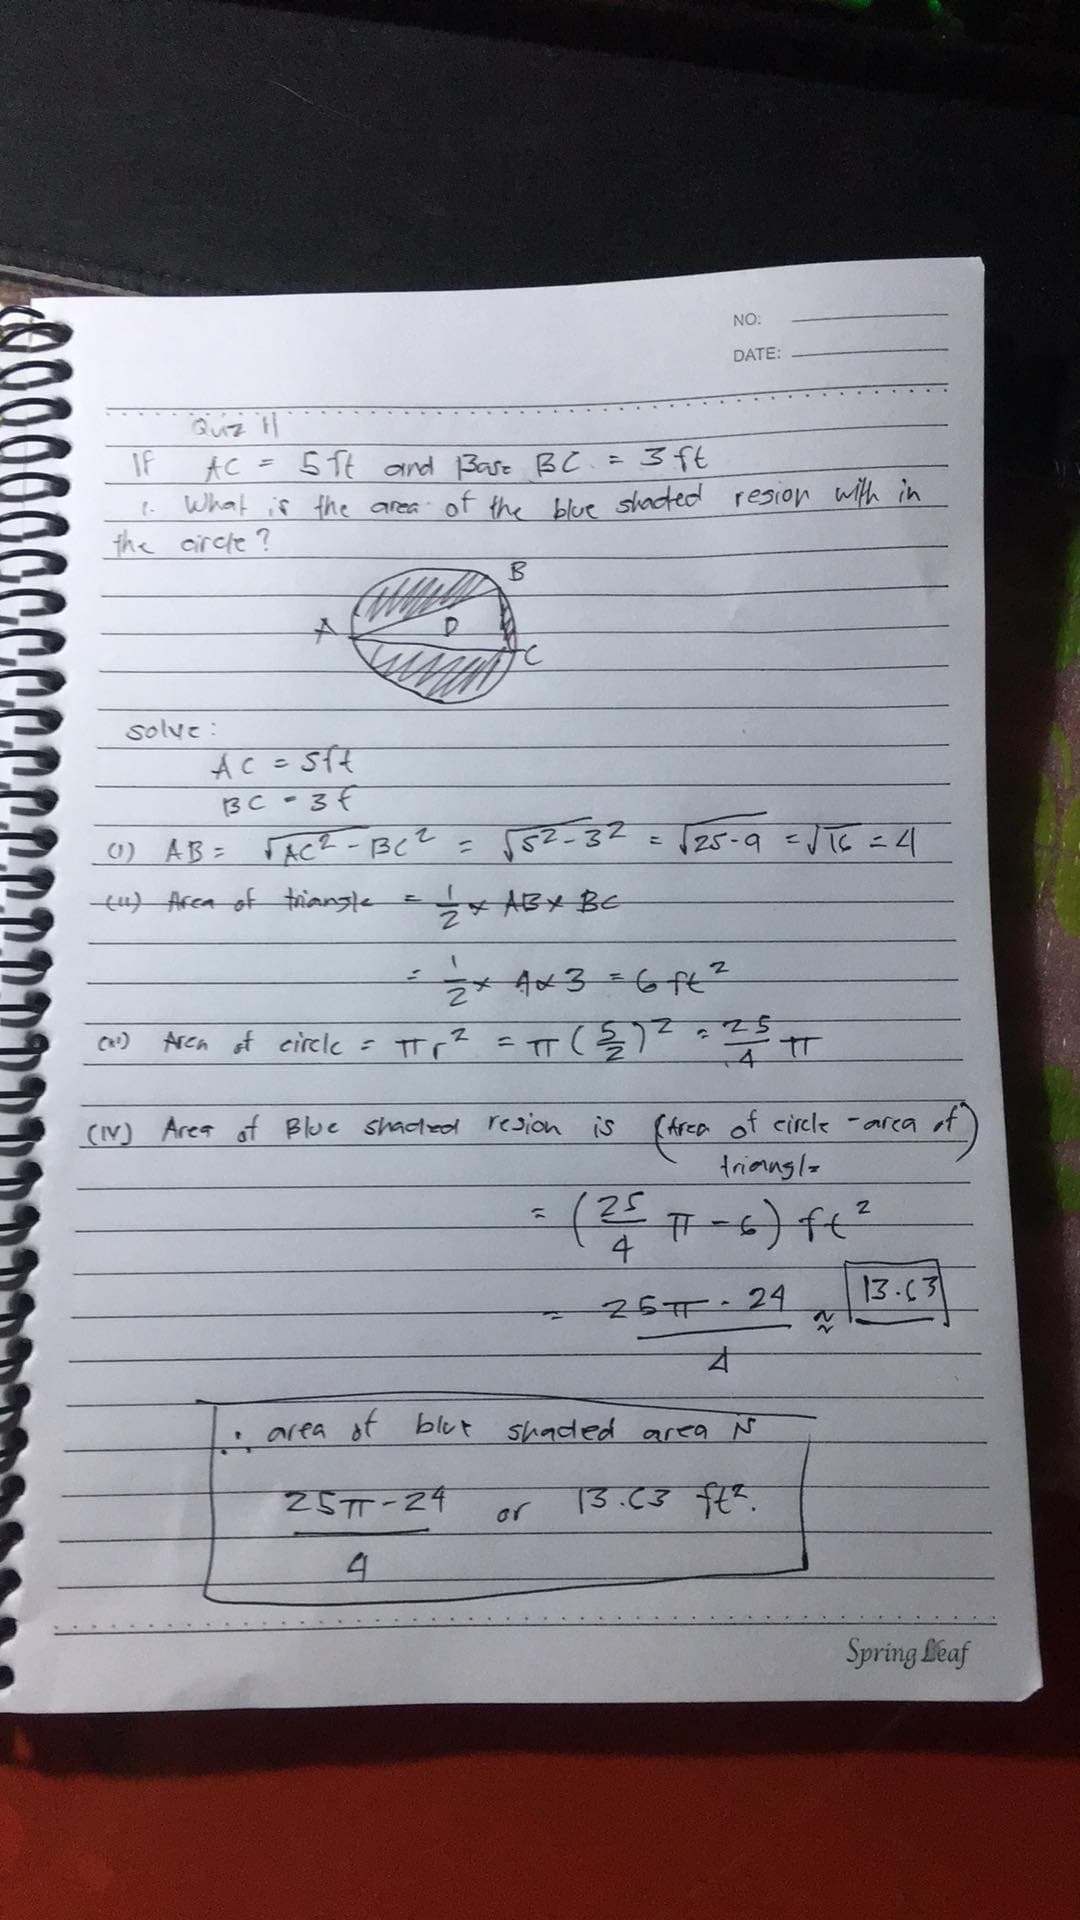 NO:
DATE:
Quiz 11
If AC = 5 ft and Base BC = 3 ft
1. What is the area of the blue shaded resion with in
the circle?
B
A
D
C
solve:
AC = 5ft
BC = 3 f
(i) AB = √AC² - BC² = √5² - 3² = √25 - 9 = √16 = 4
(ii) Area of triangle = 1/2 × AB × BC
= 1/2 × 4 × 3 = 6 ft²
(iii) Area of circle = πr² = π(5/2)² = 25/4 π
(iv) Area of Blue shaded resion is (Area of circle - area of
triangle)
= (25/4 π - 6) ft²
= 25π - 24 / 4 ≈ 13.63
∴ area of blue shaded area is
25π - 24 / 4 or 13.63 ft².
Spring Leaf